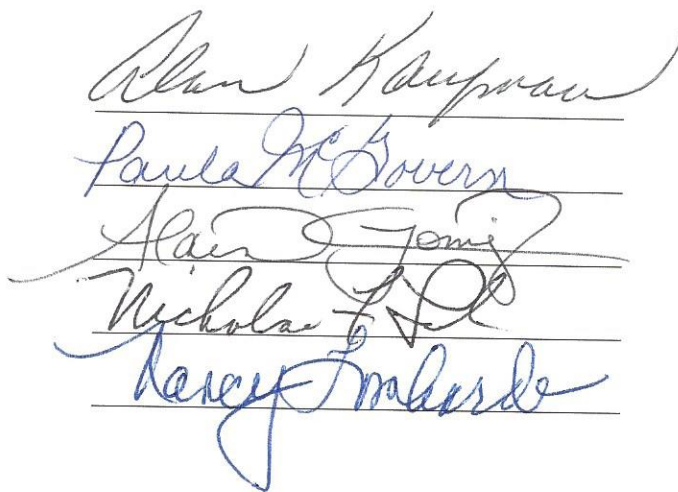 Alan Kaufman
Paula McGovern
Alain Gomez
Nicholas F
Nancy Lombardo